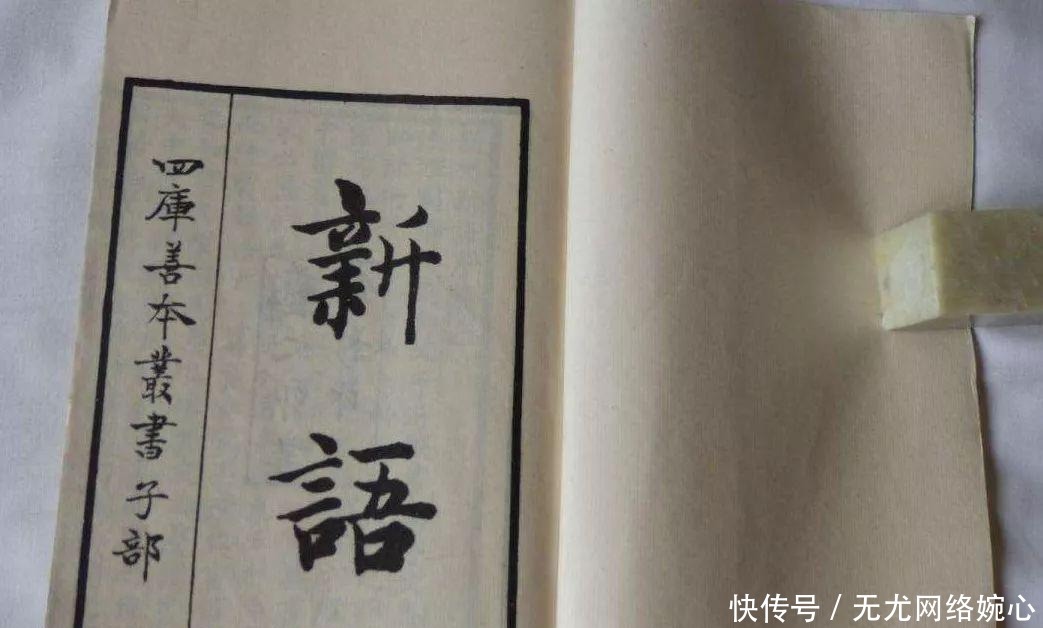 新語
四庫善本叢書子部
快传号/无尤网络婉心